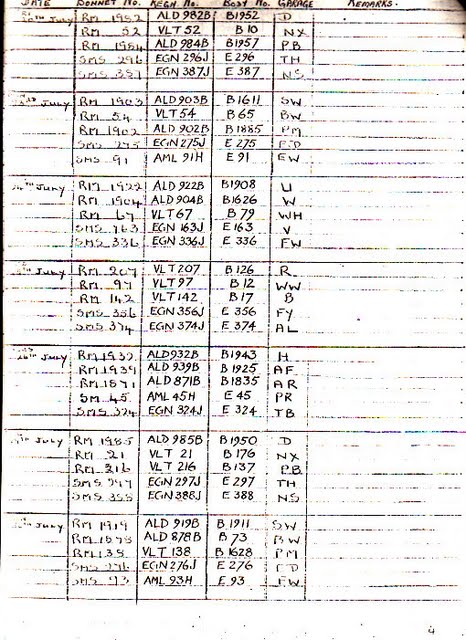 DATE BONNET No. REGN. No. BODY No. GARAGE REMARKS.
July RM 1982 ALD 982B B1952 D
RM 52 VLT 52 B 10 NX
RM 1984 ALD 984B B1957 PB
SMS 296 EGN 296J E 296 TH
SMS 387 EGN 387J E 387 NS
July RM 1903 ALD 903B B1611 SW
RM 54 VLT 54 B 65 BW
RM 1902 ALD 902B B1885 PM
SMS 275 EGN 275J E 275 ED
SMS 91 AML 91H E 91 EW
July RM 1922 ALD 922B B1908 U
RM 1904 ALD 904B B1626 W
RM 67 VLT 67 B 79 WH
SMS 163 EGN 163J E 163 V
SMS 336 EGN 336J E 336 FW
July RM 207 VLT 207 B 126 R
RM 97 VLT 97 B 12 WW
RM 142 VLT 142 B 17 B
SMS 356 EGN 356J E 356 FY
SMS 374 EGN 374J E 374 AL
July RM 1932 ALD 932B B1943 H
RM 1939 ALD 939B B 1925 AF
RM 1871 ALD 871B B1835 AR
SM 45 AML 45H E 45 PR
SMS 324 EGN 324J E 324 TB
July RM 1985 ALD 985B B1950 D
RM 21 VLT 21 B 176 NX
RM 216 VLT 216 B 137 PB
SMS 297 EGN 297J E 297 TH
SMS 388 EGN 388J E 388 NS
July RM 1919 ALD 919B B 1911 SW
RM 1878 ALD 878B B 73 BW
RM 138 VLT 138 B 1628 PM
SMS 276 EGN 276J E 276 ED
SMS 93 AML 93H E 93 EW